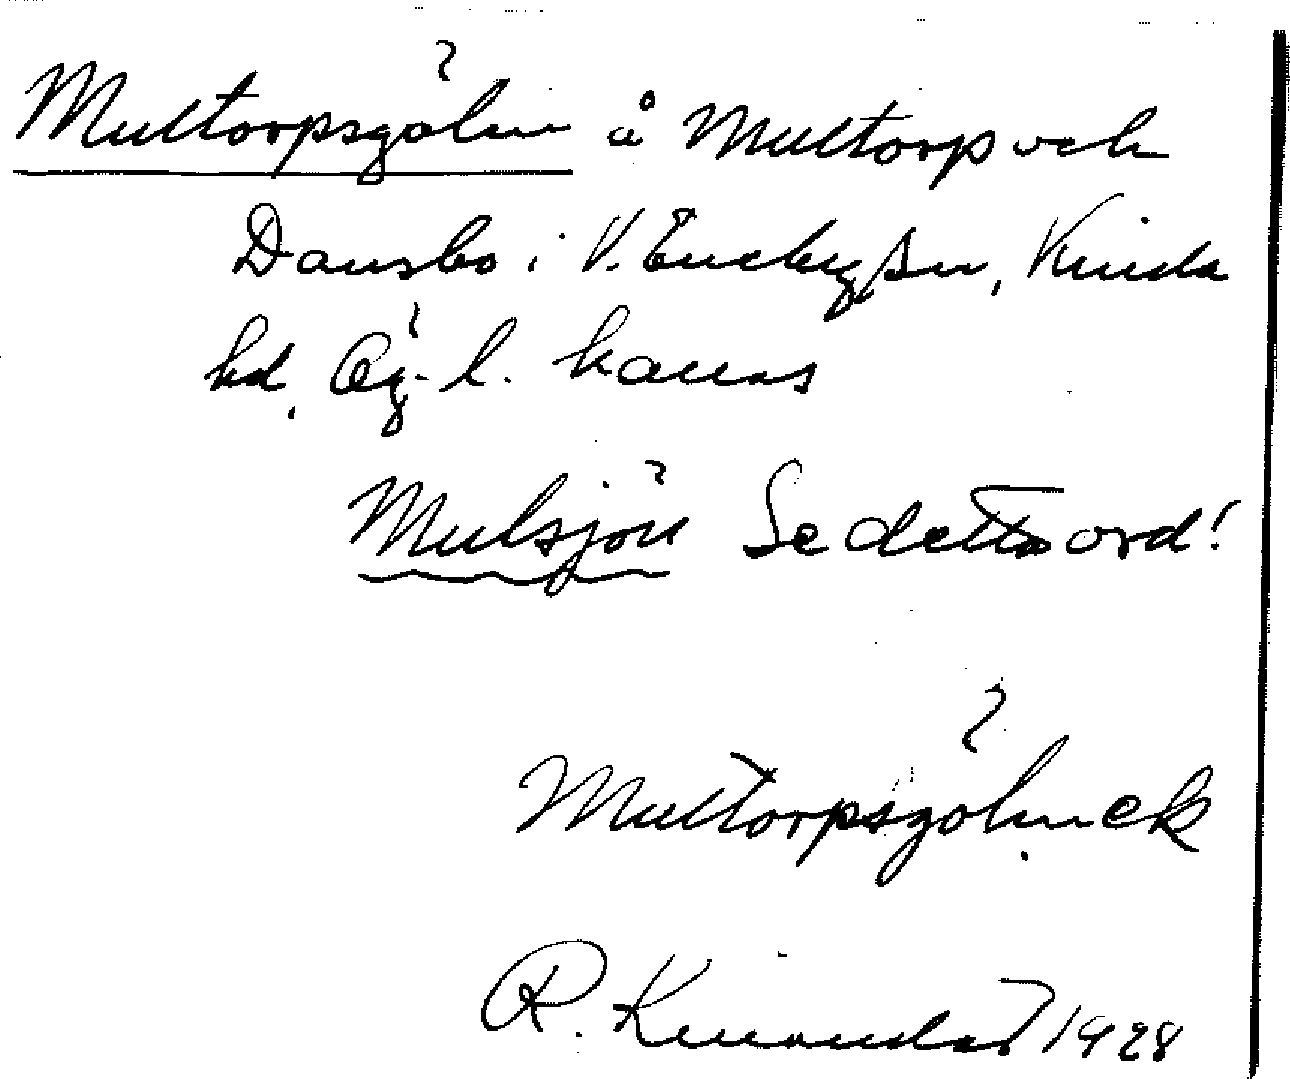 Multorpsgöln å Multorp och
Dansbo i V. Eneby sn, Kinda
hd, Ög. l. kallas
Mulsjön Se detta ord!
Multorpsgölen ek
R. 1928